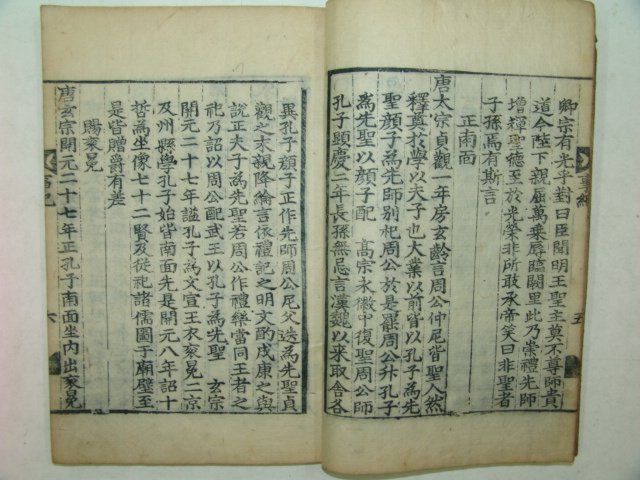 卿宗有光乎對曰臣聞明王聖主莫不尊師貴
道今陛下親屈萬乘辱臨闕里此乃崇禮先師
增輝聖德至於光榮非所敢承帝笑曰非聖者
子孫焉有斯言
正南面
唐太宗貞觀一年房玄齡言周公仲尼皆聖人然
釋奠於學以夫子也大業以前皆以孔子為先
聖顔子為先師別祀周公於是罷周公升孔子
為先聖以顔子配 高宗永徽中復聖周公師
孔子顯慶二年長孫無忌言漢魏以來取舍各
五
異孔子顔子正作先師周公尼父迭為先聖貞
觀之末親降綸言依禮記之明文酌成康之奥
說正夫子為先聖若周公作禮樂當同王者之
祀乃詔以周公配武王以孔子為先聖 玄宗
開元二十七年謚孔子為文宣王衣袞冕二京
及州縣學孔子始皆南面先是開元八年詔十
哲為坐像七十二賢及從祀諸儒圖于廟壁至
是皆贈爵有差
賜袞冕
唐玄宗開元二十七年正孔子南面坐内出袞冕
事紀
六